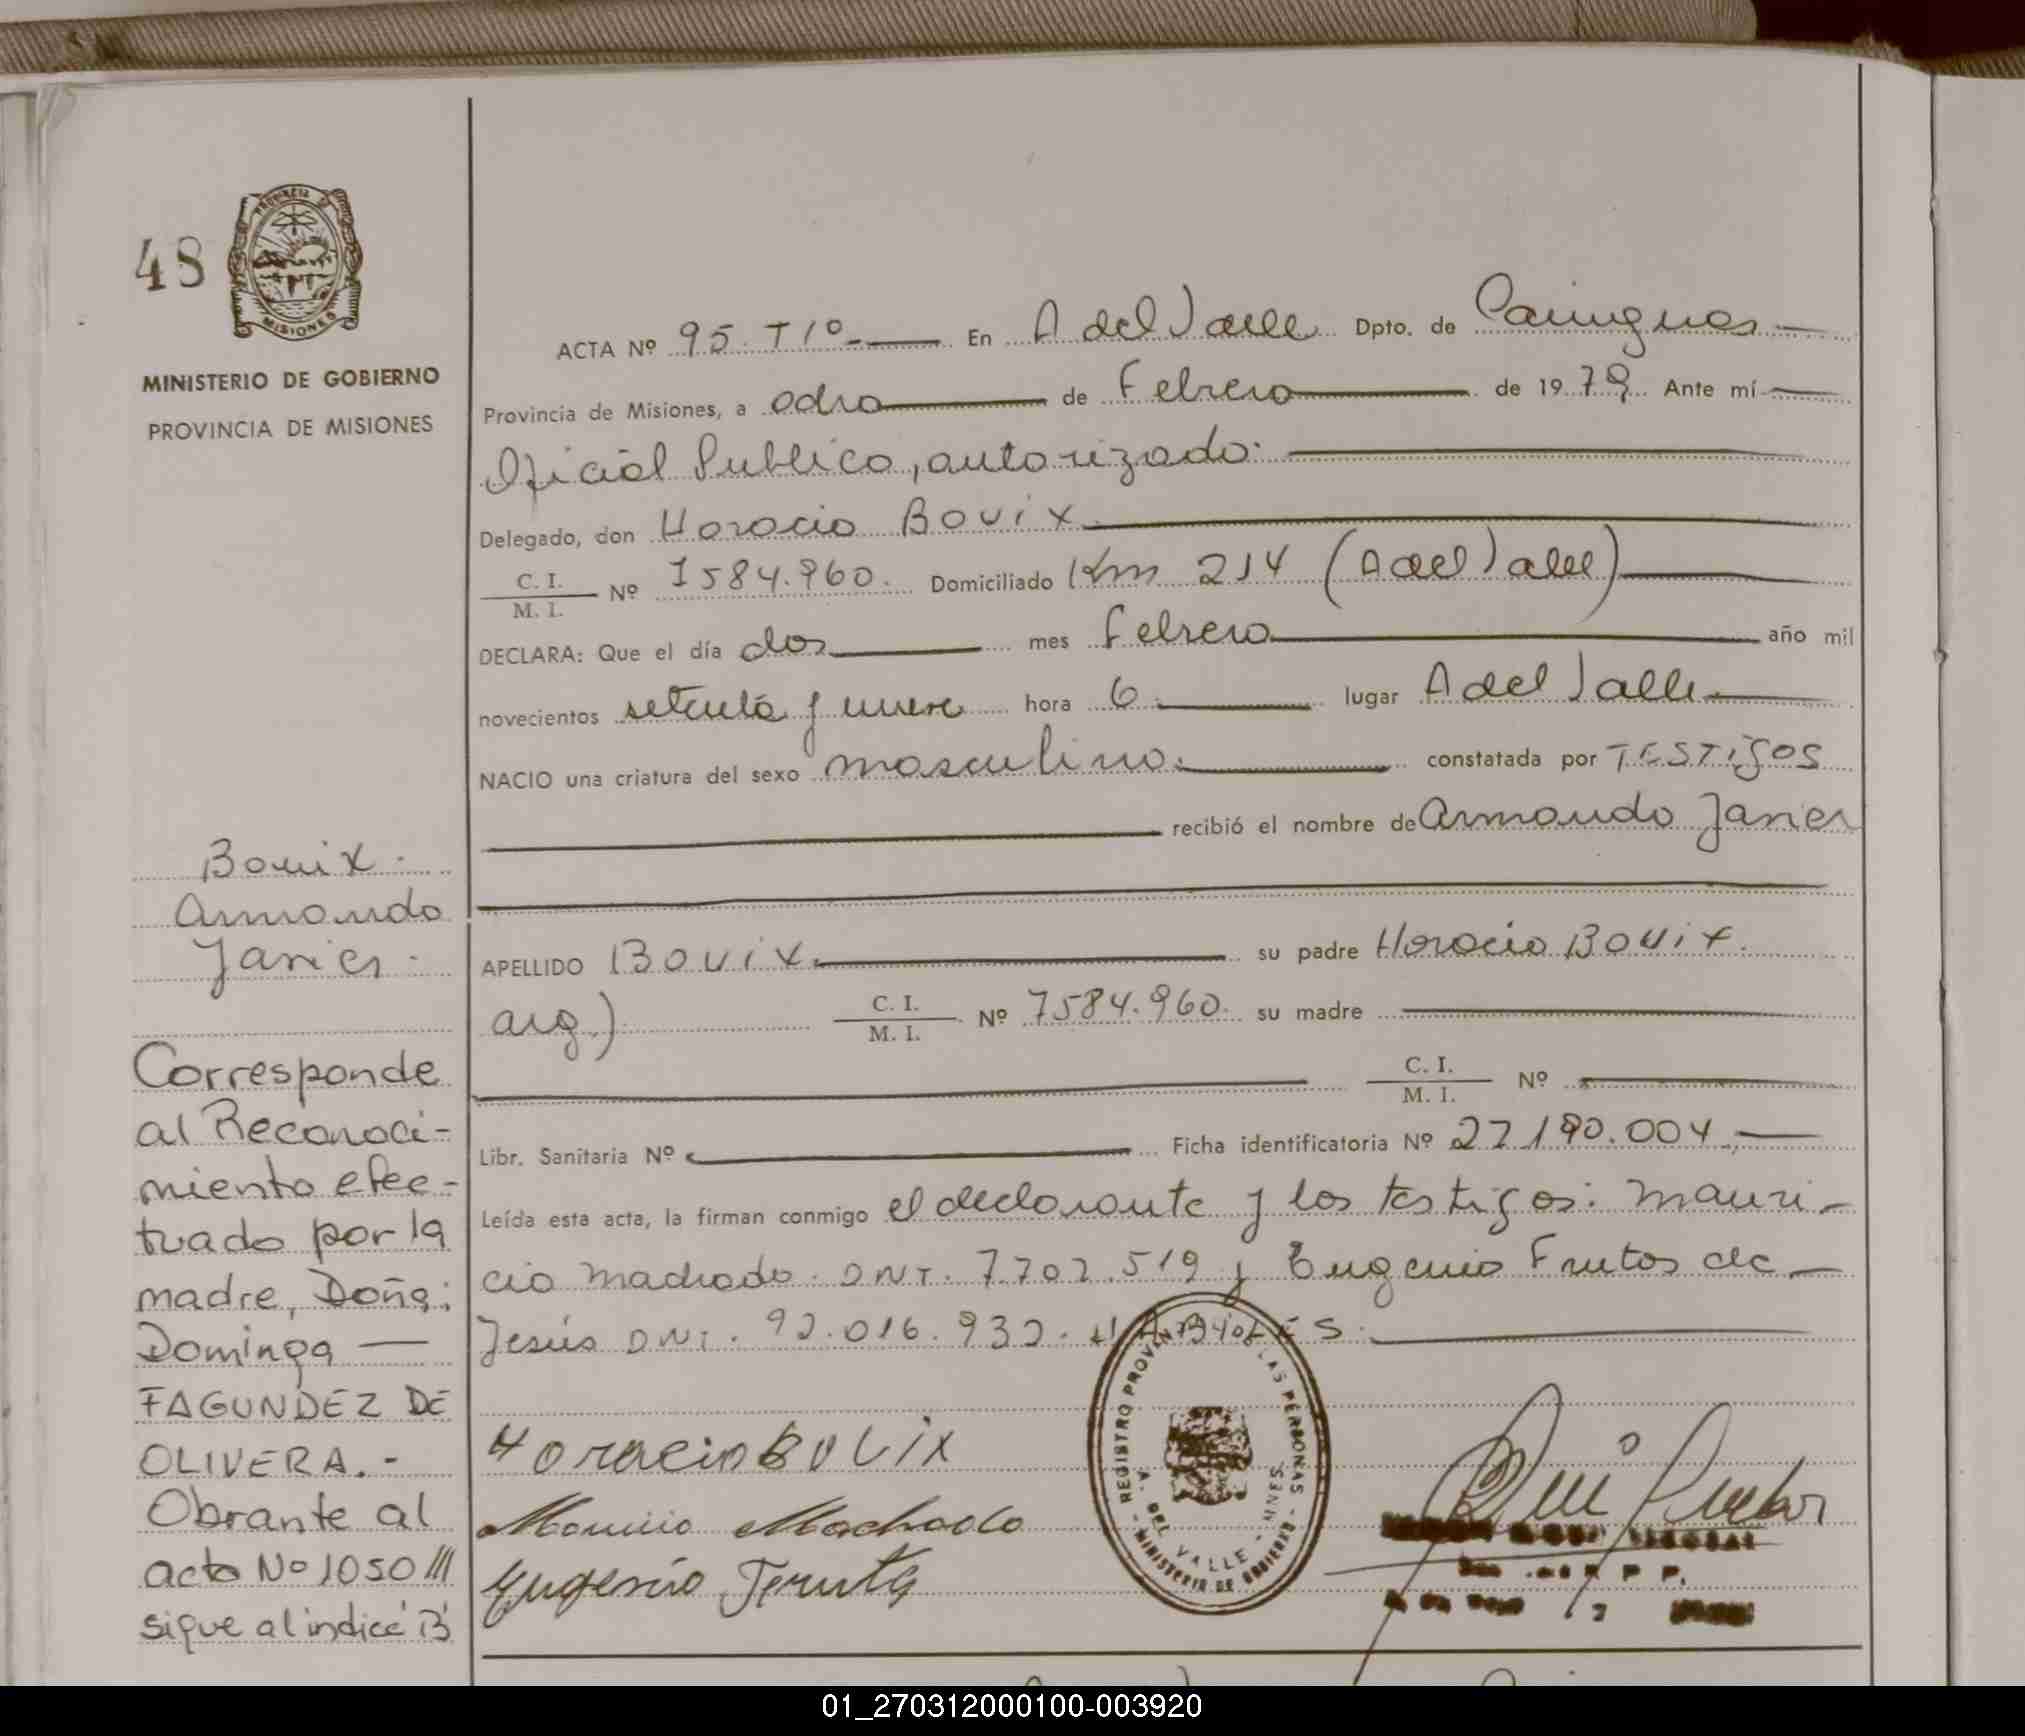 48
PROVINCIA DE
MISIONES
MINISTERIO DE GOBIERNO
PROVINCIA DE MISIONES
ACTA Nº 95. T1º.- En A del Valle Dpto. de Cainguas
Provincia de Misiones, a ocho de Febrero de 1979 Ante mí
Oficial Publico, autorizado.
Delegado, don Horacio BOUIX
C. I.
M. I. Nº 7584.960. Domiciliado Km 214 (A del Valle)
DECLARA: Que el día dos mes febrero año mil
novecientos setenta y nueve hora 6. lugar A del Valle
NACIO una criatura del sexo masculino. constatada por TESTIGOS
recibió el nombre de Armando Javier
Bouix.
Armando
Javier.
APELLIDO BOUIX. su padre Horacio BOUIX.
arg.) C. I.
M. I. Nº 7584.960. su madre
C. I.
M. I. Nº
Libr. Sanitaria Nº Ficha identificatoria Nº 27190.004.
Leída esta acta, la firman conmigo el declarante y los testigos: Mauri-
cio Machado. DNI. 7.702.519 y Eugenio Frutos de
Jesús DNI. 92.016.932.
Corresponde
al Reconoci-
miento efec-
tuado por la
madre, Doña:
Dominga
FAGUNDEZ DE
OLIVERA.-
Obrante al
acta Nº 1050///
sigue al indice B
Horacio BOUIX
Mauricio Machado
Eugenio Fruto
REGISTRO PROVINCIAL DE LAS PERSONAS
A. DEL VALLE - MNES.
MINISTERIO DE GOBIERNO
01_270312000100-003920